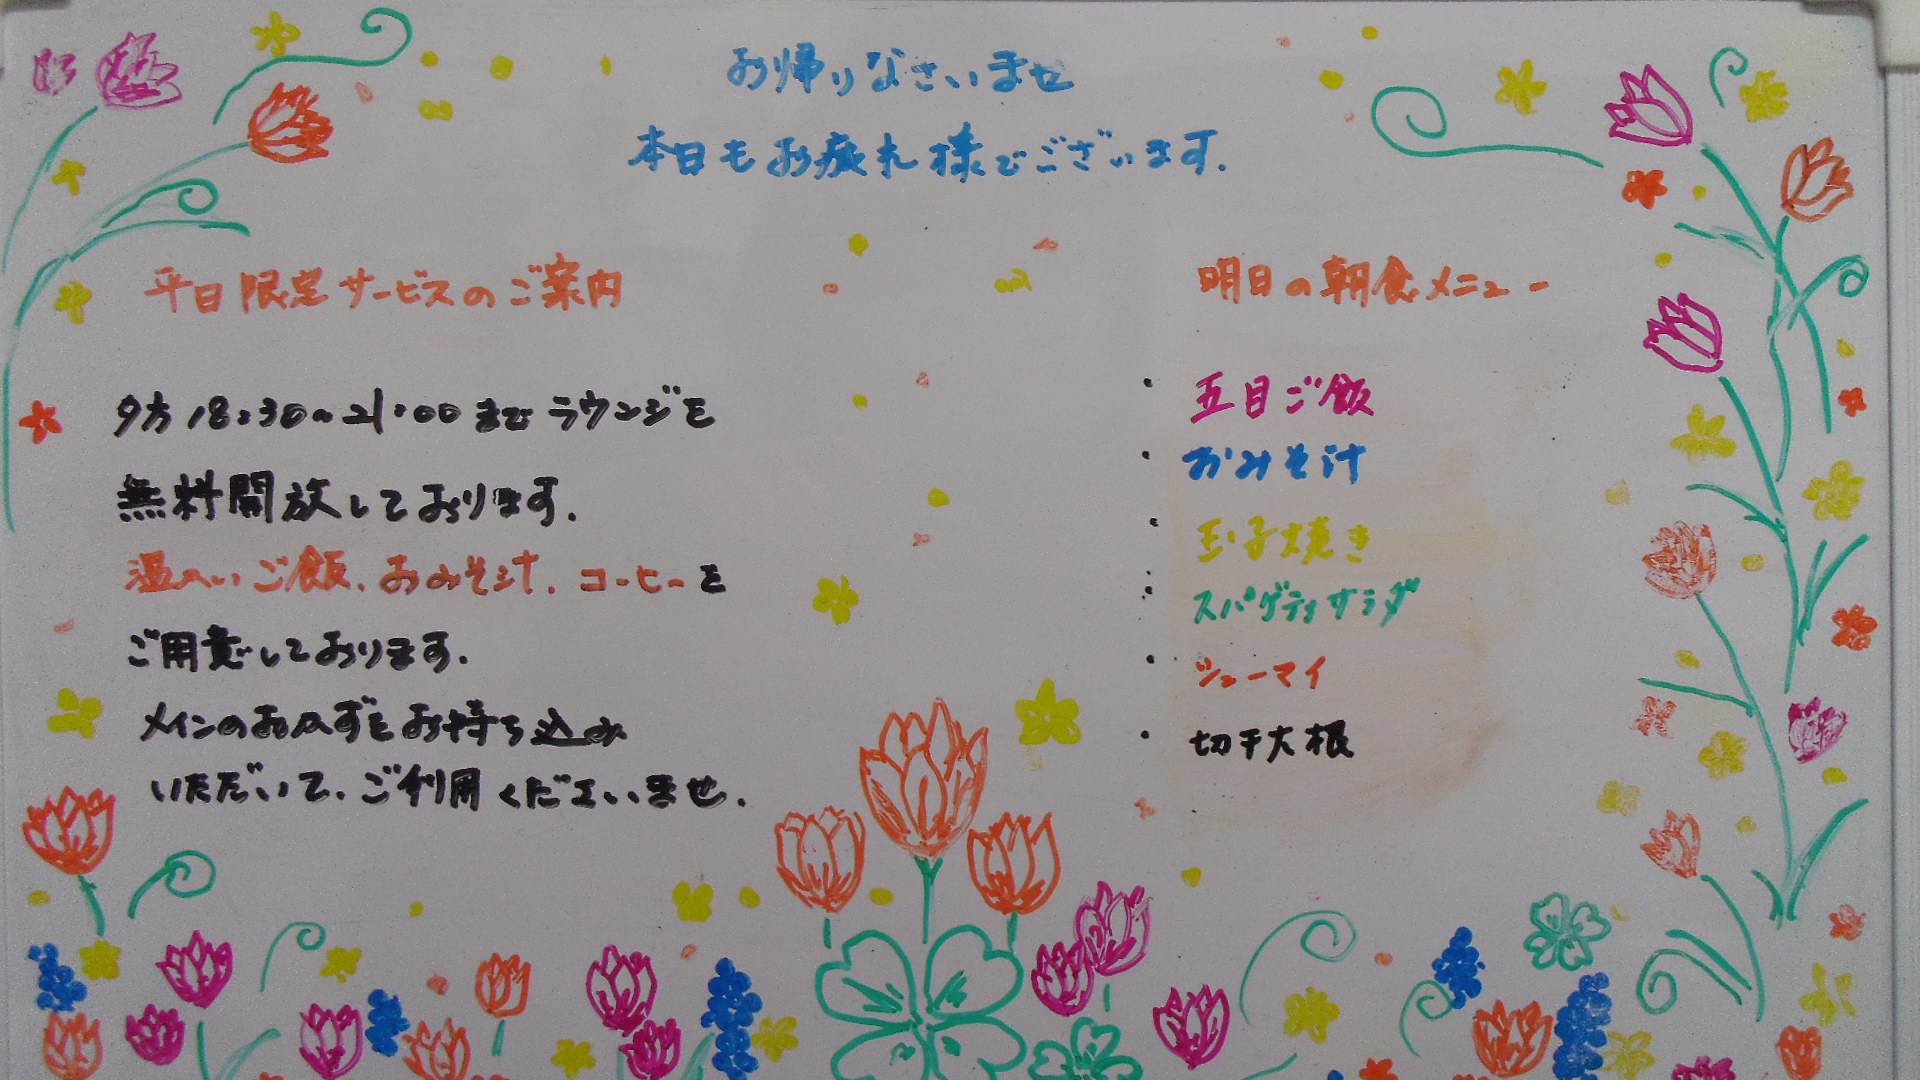 お帰りなさいませ
本日もお疲れ様でございます.
平日限定サービスのご案内
夕方18:30〜21:00までラウンジを
無料開放しております.
温かいご飯、おみそ汁、コーヒーを
ご用意しております.
メインのおかずをお持ち込み
いただいて、ご利用くださいませ.
明日の朝食メニュー
・五目ご飯
・おみそ汁
・玉子焼き
・スパゲティサラダ
・シューマイ
・切干大根